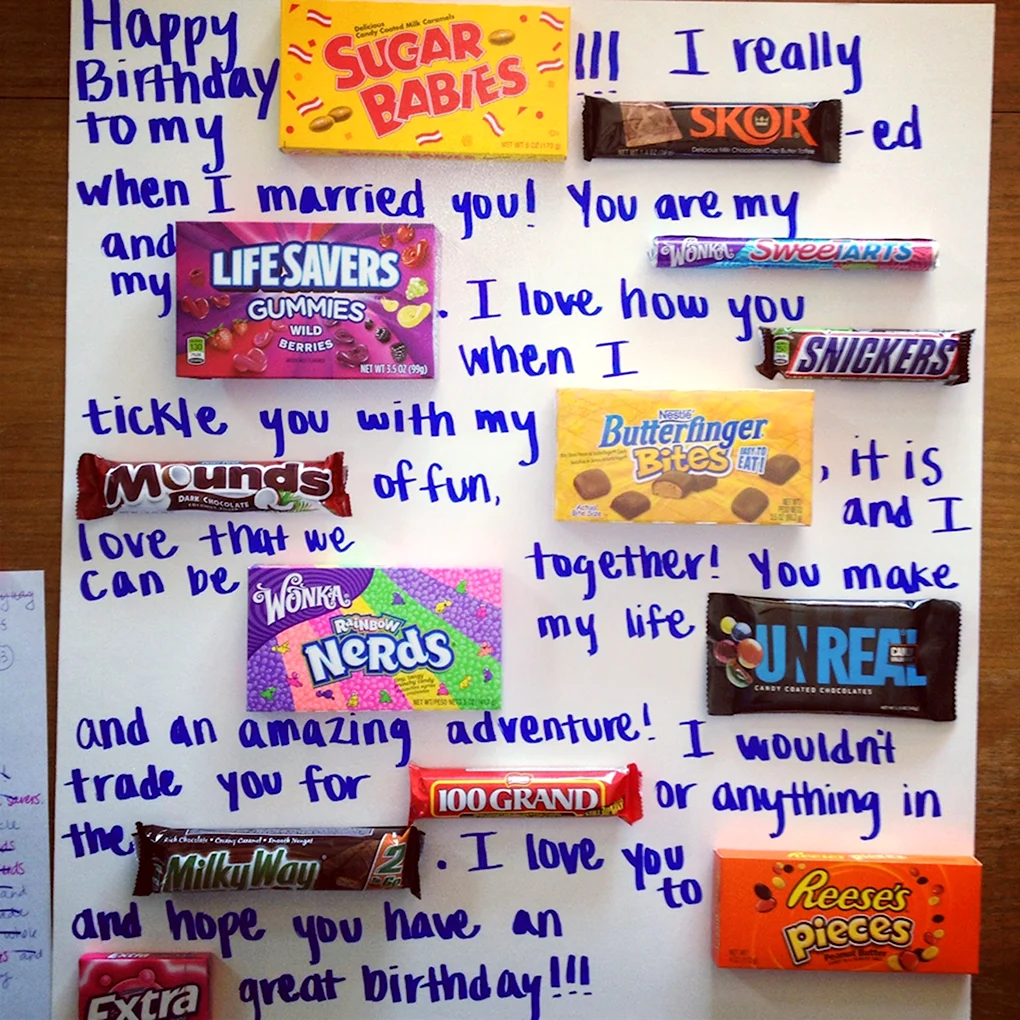 Happy
Birthday
to my
Delicious
Candy Coated Milk Caramels
SUGAR
BABIES
NET WT 6 OZ (170 g)
!!! I really
SKOR
Delicious Milk Chocolate/Crisp Butter Toffee
-ed
when I married you! You are my
WONKA SWEETARTS
and
my
LIFE SAVERS
GUMMIES
WILD
BERRIES
NET WT 3.5 OZ (99g)
. I love how you
SNICKERS
when I
tickle you with my
Nestle
Butterfinger
Bites
EASY TO
EAT!
Actual
Bite Size
, it is
Mounds
DARK CHOCOLATE
of fun,
and I
love that we
can be
WONKA
RAINBOW
NeRds
together! You make
my life
UNREAL
CANDY COATED CHOCOLATES
and an amazing adventure! I wouldn't
trade you for
100 GRAND
or anything in
the
Rich Chocolate • Creamy Caramel • Smooth Nougat
Milky Way
2
to Go
. I love you
to
Reese's
pieces
Peanut Butter
and hope you have an
Extra
great birthday!!!
savers.
and